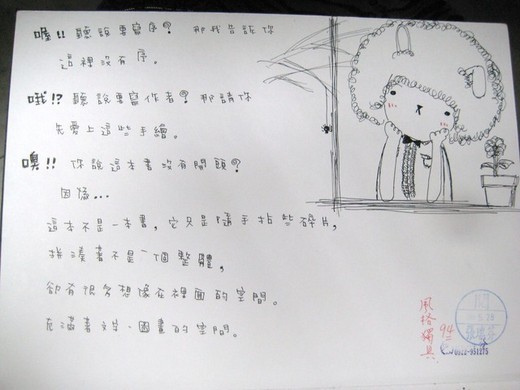 喔!! 聽說要寫序? 那我告訴你
這裡沒有序。
哦!? 聽說要寫作者? 那請你
先愛上這些手繪。
噢!! 你說這本書沒有開頭?
因為...
這本不是一本書,它只是隨手拈些碎片,
拼湊著不是一個整體,
卻有很多想像在裡面的空間。
充滿著文字、圖畫的空間。
風格獨具
94